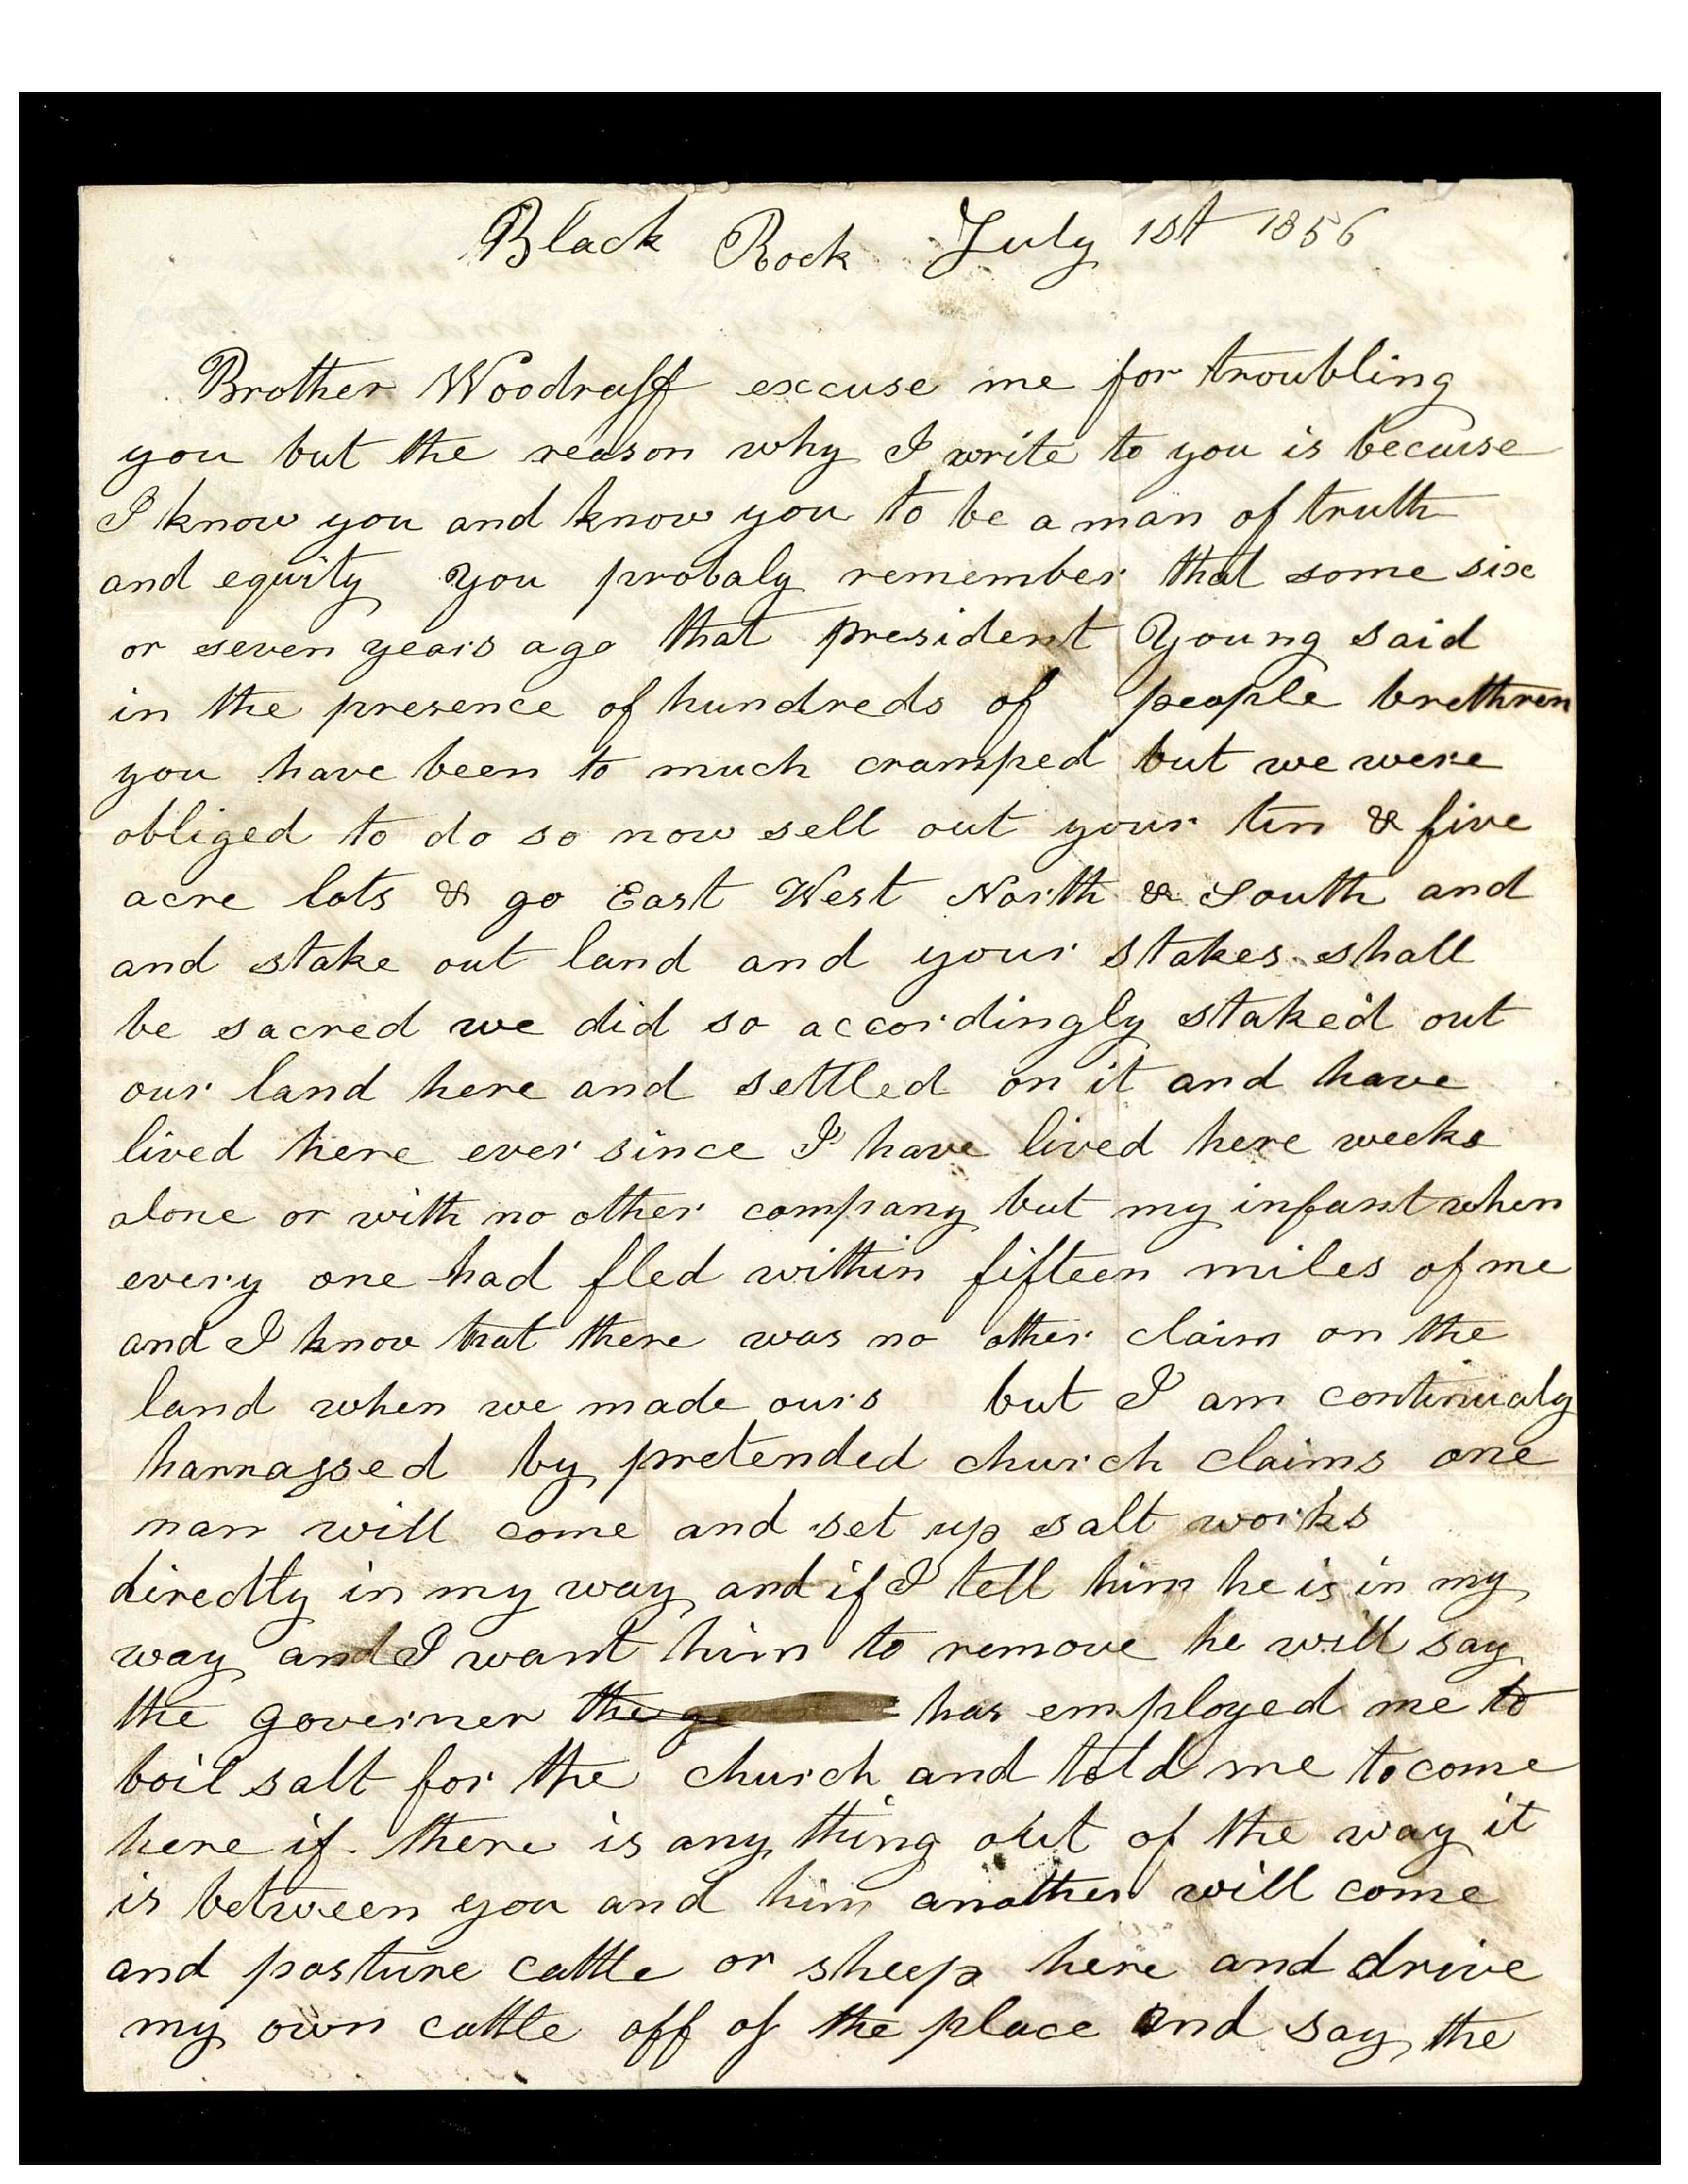 Black Rock July 1st 1856
Brother Woodruff excuse me for troubling
you but the reason why I write to you is becuise
I know you and know you to be a man of truth
and equity you probaly remember that some six
or seven years ago that president Young said
in the presence of hundreds of people brethren
you have been to much cramped but we were
obliged to do so now sell out your ten & five
acre lots & go East West North & South and
and stake out land and your stakes shall
be sacred we did so accordingly staked out
our land here and settled on it and have
lived here ever since I have lived here weeks
alone or with no other company but my infant when
every one had fled within fifteen miles of me
and I know that there was no other claim on the
land when we made ours but I am continualy
harrassed by pretended church claims one
man will come and set up salt works
directly in my way and if I tell him he is in my
way and I want him to remove he will say
the governer the has employed me to
boil salt for the church and told me to come
here if there is any thing out of the way it
is between you and him another will come
and pasture cattle or sheep here and drive
my own cattle off of the place and say the